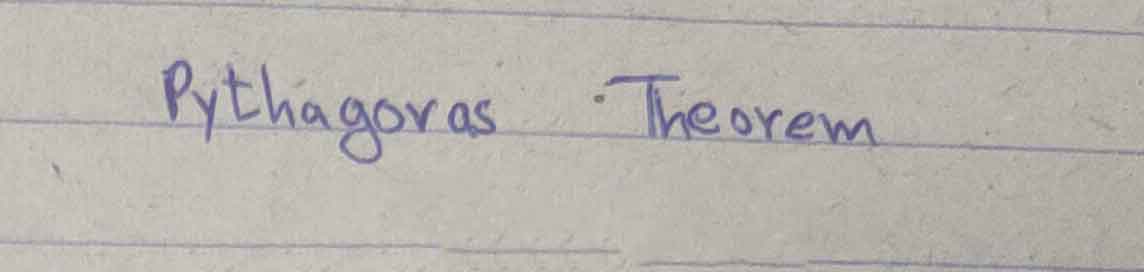 Pythagoras Theorem